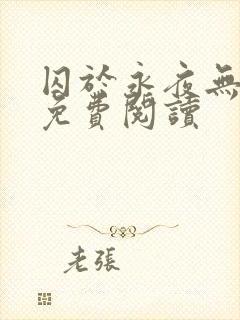 囚於永夜無
免費閱讀
老張